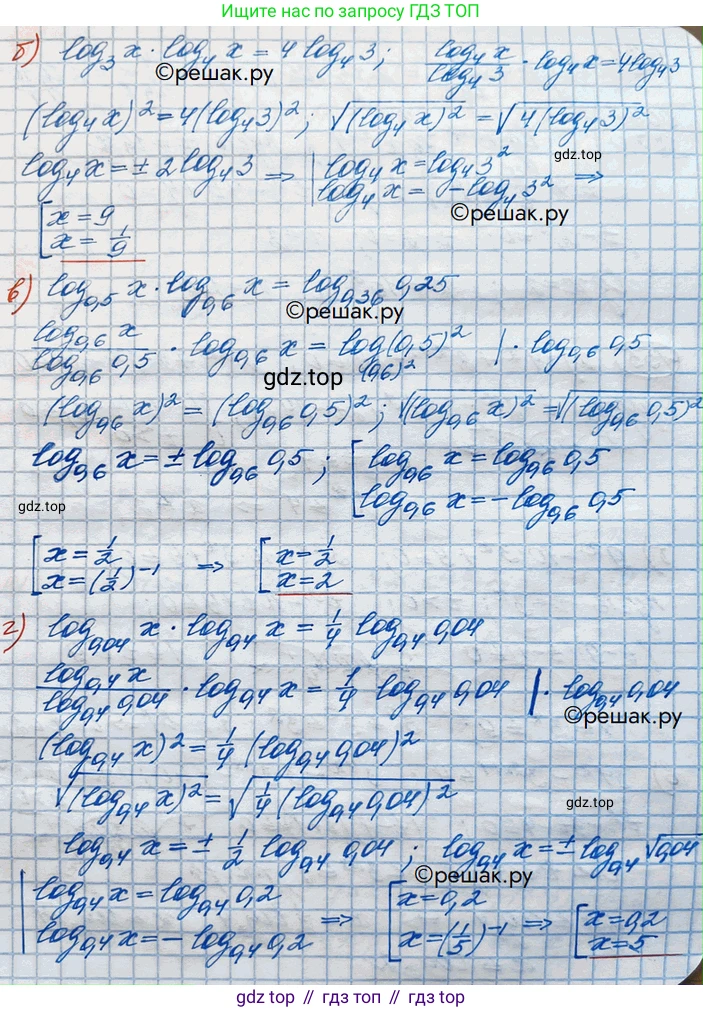 Ищите нас по запросу ГДЗ ТОП
б) log₃ x · log₄ x = 4 log₄ 3; log₄ x / log₄ 3 · log₄ x = 4 log₄ 3
©решак.ру
(log₄ x)² = 4(log₄ 3)²; √(log₄ x)² = √4(log₄ 3)²
gdz.top
log₄ x = ± 2 log₄ 3 => | log₄ x = log₄ 3² =>
log₄ x = - log₄ 3²
©решак.ру
[ x = 9
x = 1/9
в) log₀,₅ x · log₀,₆ x = log₀,₃₆ 0,25
©решак.ру
log₀,₆ x / log₀,₆ 0,5 · log₀,₆ x = log(0,6)² (0,5)² | · log₀,₆ 0,5
gdz.top
(log₀,₆ x)² = (log₀,₆ 0,5)²; √(log₀,₆ x)² = √(log₀,₆ 0,5)²
log₀,₆ x = ± log₀,₆ 0,5; [ log₀,₆ x = log₀,₆ 0,5
log₀,₆ x = - log₀,₆ 0,5
gdz.top
[ x = 1/2 => [ x = 1/2
x = (1/2)⁻¹ x = 2
г) log₀,₀₄ x · log₀,₄ x = 1/4 log₀,₄ 0,04
log₀,₄ x / log₀,₄ 0,04 · log₀,₄ x = 1/4 log₀,₄ 0,04 | · log₀,₄ 0,04
©решак.ру
(log₀,₄ x)² = 1/4 (log₀,₄ 0,04)²
√(log₀,₄ x)² = √1/4 (log₀,₄ 0,04)²
gdz.top
log₀,₄ x = ± 1/2 log₀,₄ 0,04; log₀,₄ x = ± log₀,₄ √0,04
©решак.ру
| log₀,₄ x = log₀,₄ 0,2 => [ x = 0,2 => [ x = 0,2
log₀,₄ x = - log₀,₄ 0,2 x = (1/5)⁻¹ x = 5
gdz top // гдз топ // gdz top